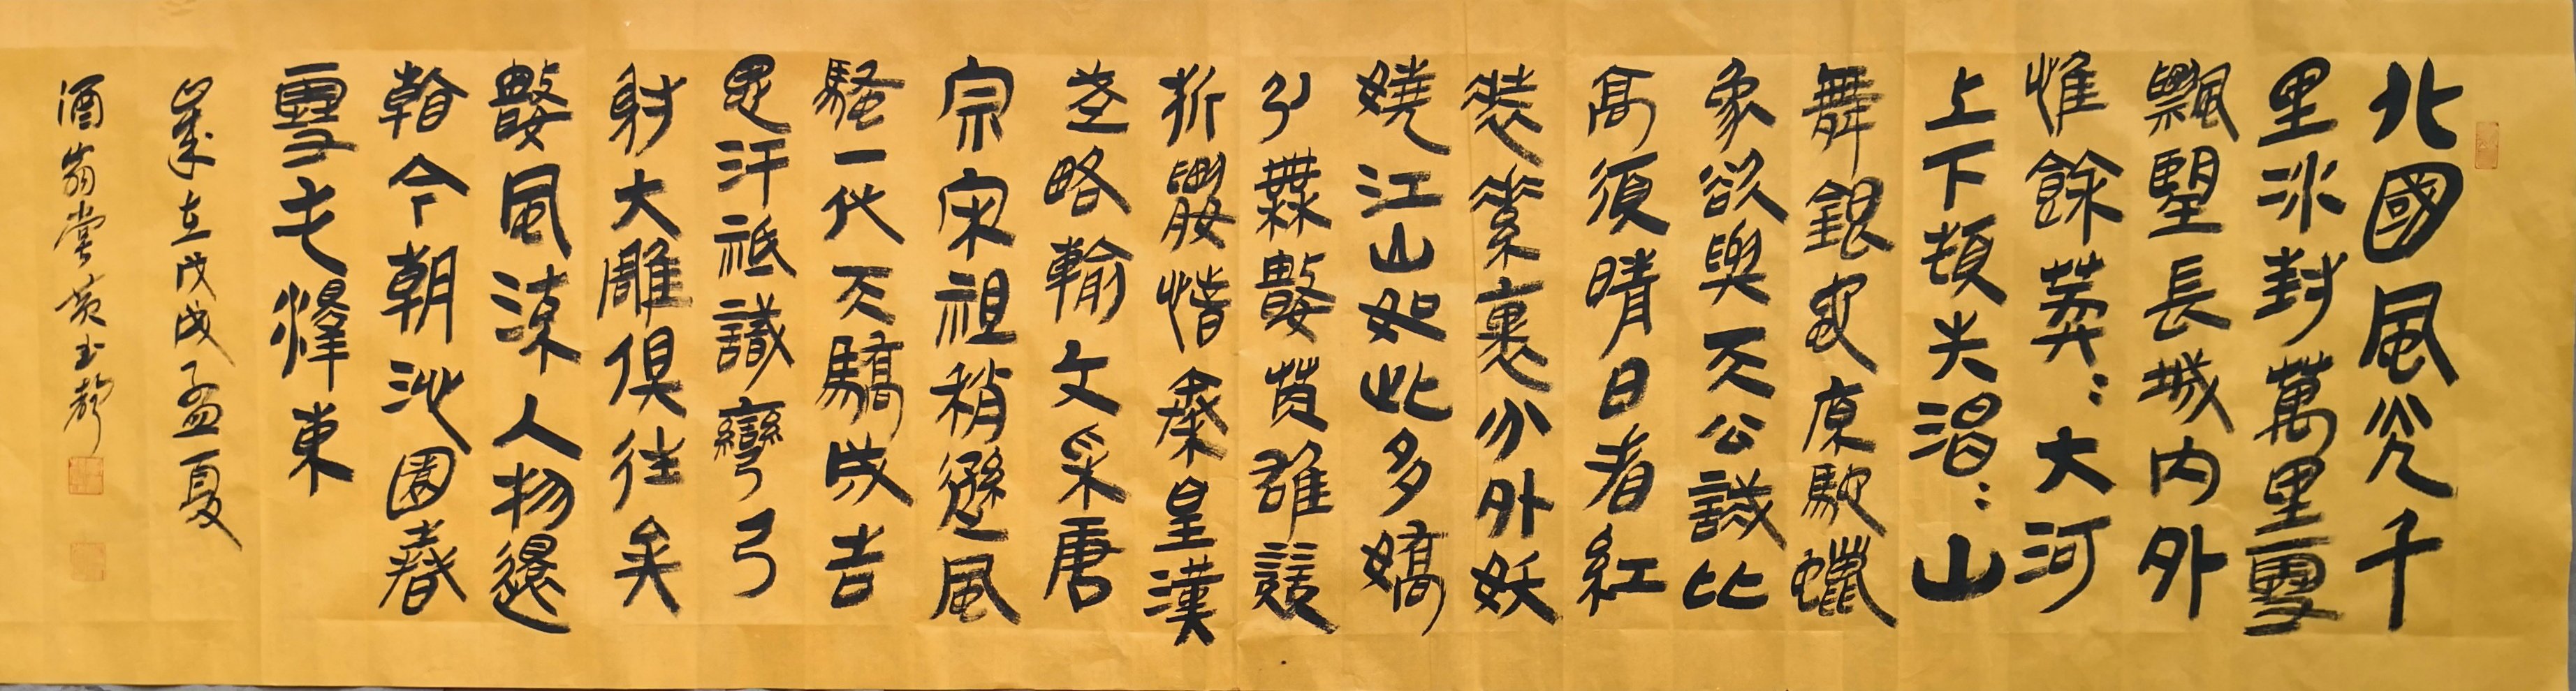 北國風光千
里冰封萬里雪
飄望長城内外
惟餘莽：大河
上下頓失滔：山
舞銀蛇原馳蠟
象欲與天公試比
高須晴日看紅
裝素裹分外妖
嬈江山如此多嬌
引無數英雄競
折腰惜秦皇漢
武略輸文采唐
宗宋祖稍遜風
騷一代天驕成吉
思汗祗識彎弓
射大雕俱往矣
數風流人物還
看今朝沁園春
雪毛澤東
歲在戊戌孟夏
酒翁堂黃玉